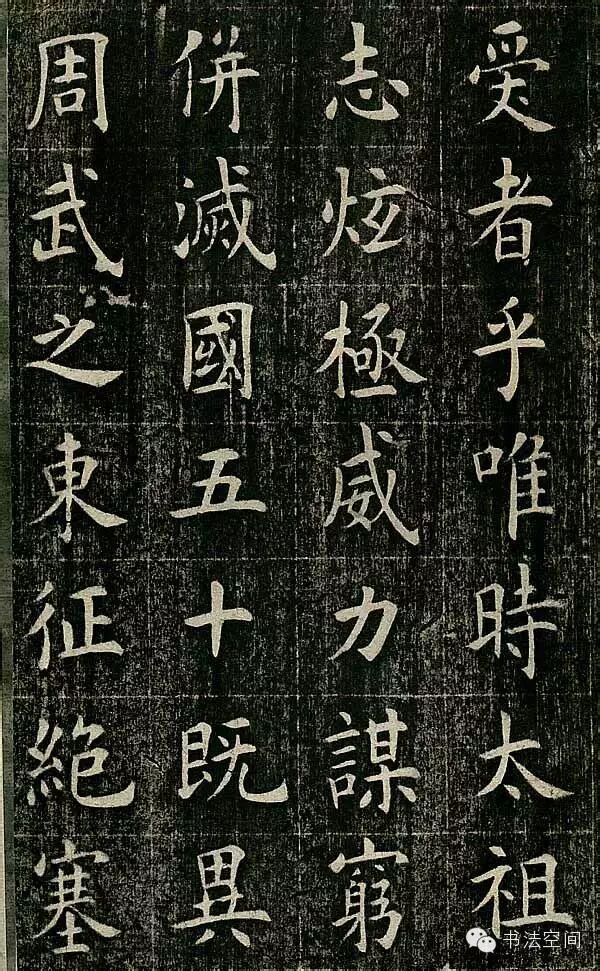 受者乎唯時太祖
志炫極威力謀窮
併滅國五十既異
周武之東征絕塞
书法空间